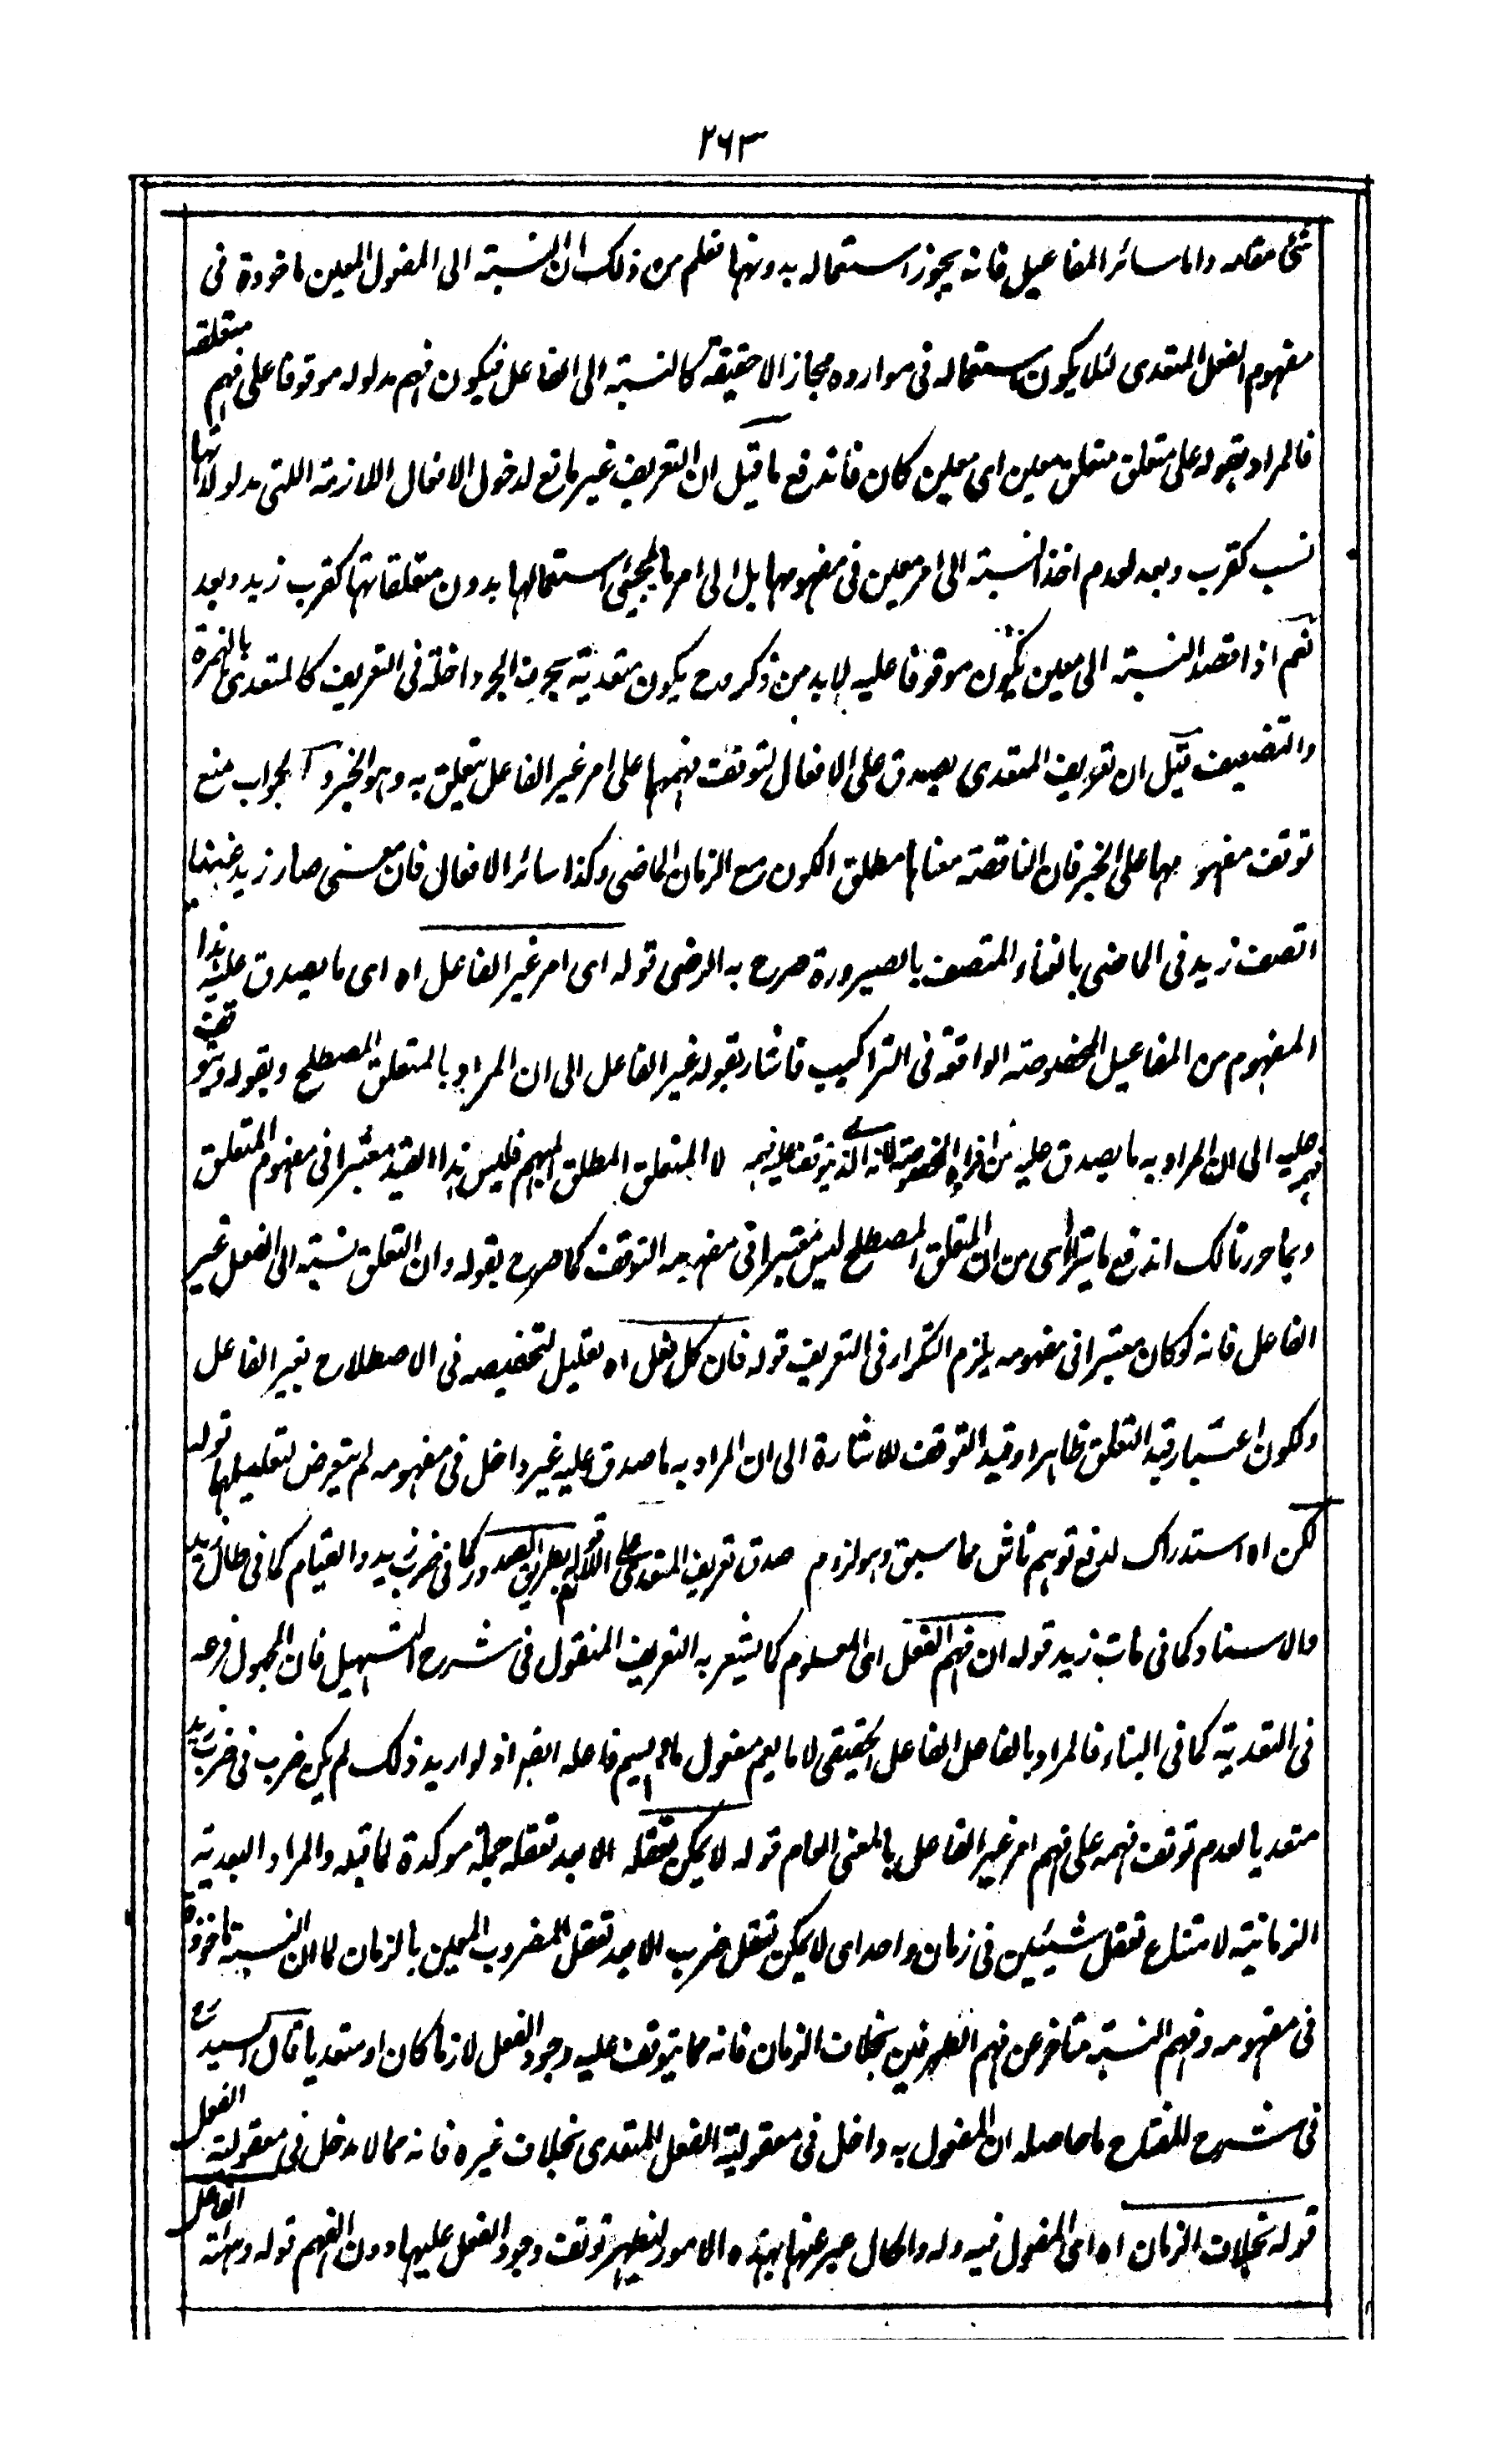 ٢٦٣
شئ مقامه واما سائر المفاعيل فانه يجوز استعماله بدونها فعلم من ذلك ان النسبة الى المفعول المعين ماخوذة فى
مفهوم الفعل المتعدى لئلا يكون استعماله فى موارده مجازا لا حقيقة كالنسبة الى الفاعل فيكون فهم مدلوله موقوفا على فهم متعلقه
فالمراد بقوله على متعلق متعلق معين اى معين كان فاندفع ما قيل ان التعريف غير مانع لدخول الافعال اللازمة اللتى مدلولاتها
نسب كقرب وبعد لعدم اخذ النسبة الى امر معين فى مفهومها بل الى امر ما لمجيئ استعمالها بدون متعلقاتها كقرب زيد وبعد
نعم اذا قصد النسبة الى معين يكون موقوفا عليه لا بد من ذكره وح يكون متعدية بحرف الجر داخلة فى التعريف كالمتعدى بالهمزة
والتضعيف قيل ان تعريف المتعدى يصدق على الافعال لتوقف فهمها على امر غير الفاعل يتعلق به وهو الخبر والجواب منع
توقف مفهومها على الخبر فان الناقصة معناها مطلق الكون مع الزمان الماضى وكذا سائر الافعال فان معنى صار زيد غنيا
اتصف زيد فى الماضى بالغناء المتصف بالصيرورة صرح به الرضى قوله اى امر غير الفاعل اه اى ما يصدق عليه هذا
المفهوم من المفاعيل المخصوصة الواقعة فى التراكيب فاشار بقوله غير الفاعل الى ان المراد بالمتعلق المصطلح وبقوله ويتوقف
فهمه عليه الى ان المراد به ما يصدق عليه من افراده المخصوصة لانه الذى يتوقف عليه فهمه لا المتعلق المطلق المبهم فليس هذا القيد معتبرا فى مفهوم المتعلق
وبما حررنا لك اندفع ما يتراأى من ان المتعلق المصطلح ليس معتبرا فى مفهومه التوقف كما صرح بقوله وان التعلق نسبة الى الفعل غير
الفاعل فانه لو كان معتبرا فى مفهومه يلزم التكرار فى التعريف قوله فان كل فعل اه تعليل لتخصيصه فى الاصطلاح بغير الفاعل
ولكون اعتبار قيد التعلق ظاهرا وقيد التوقف للاشارة الى ان المراد به ما صدق عليه غير داخل فى مفهومه لم يتعرض لتعليلها قوله
لكن اه استدراك لدفع توهم ناش مما سبق وهو لزوم صدق تعريف المتعدى على اللازم قوله بطريق الصدور كما فى ضرب زيد والقيام كما فى طال زيد
والاسناد كما فى مات زيد قوله ان فهم الفعل اى المعلوم كما يشعر به التعريف المنقول فى شرح التسهيل فان المجهول فرعه
فى التعدية كما فى البناء فالمراد بالفاعل الفاعل الحقيقى لا ما يعم مفعول ما لم يسم فاعله ايضا اذ لو اريد ذلك لم يكن ضرب فى ضرب زيد
متعديا لعدم توقف فهمه على فهم امر غير الفاعل بالمعنى العام قوله لا يمكن تعقله الا بعد تعقله جملة موكدة لما قبله والمراد البعدية
الزمانية لامتناع تعقل شيئين فى زمان واحد اى لا يمكن تعقل ضرب الا بعد تعقل المضروب المعين بالزمان لما ان النسبة ماخوذة
فى مفهومه وفهم النسبة متاخر عن فهم الطرفين بخلاف الزمان فانه مما يتوقف عليه وجود الفعل لازما كان او متعديا قال السيد رح
فى شرح المفتاح ما حاصله ان المفعول به داخل فى معقولية الفعل المتعدى بخلاف غيره فانه مما لا مدخل فى معقولية الفعل
قوله بخلاف الزمان اه اى المفعول فيه وله والحال عبر عنها بهذه الامور ليظهر توقف وجود الفعل عليها دون الفهم قوله وهيئة الفاعل